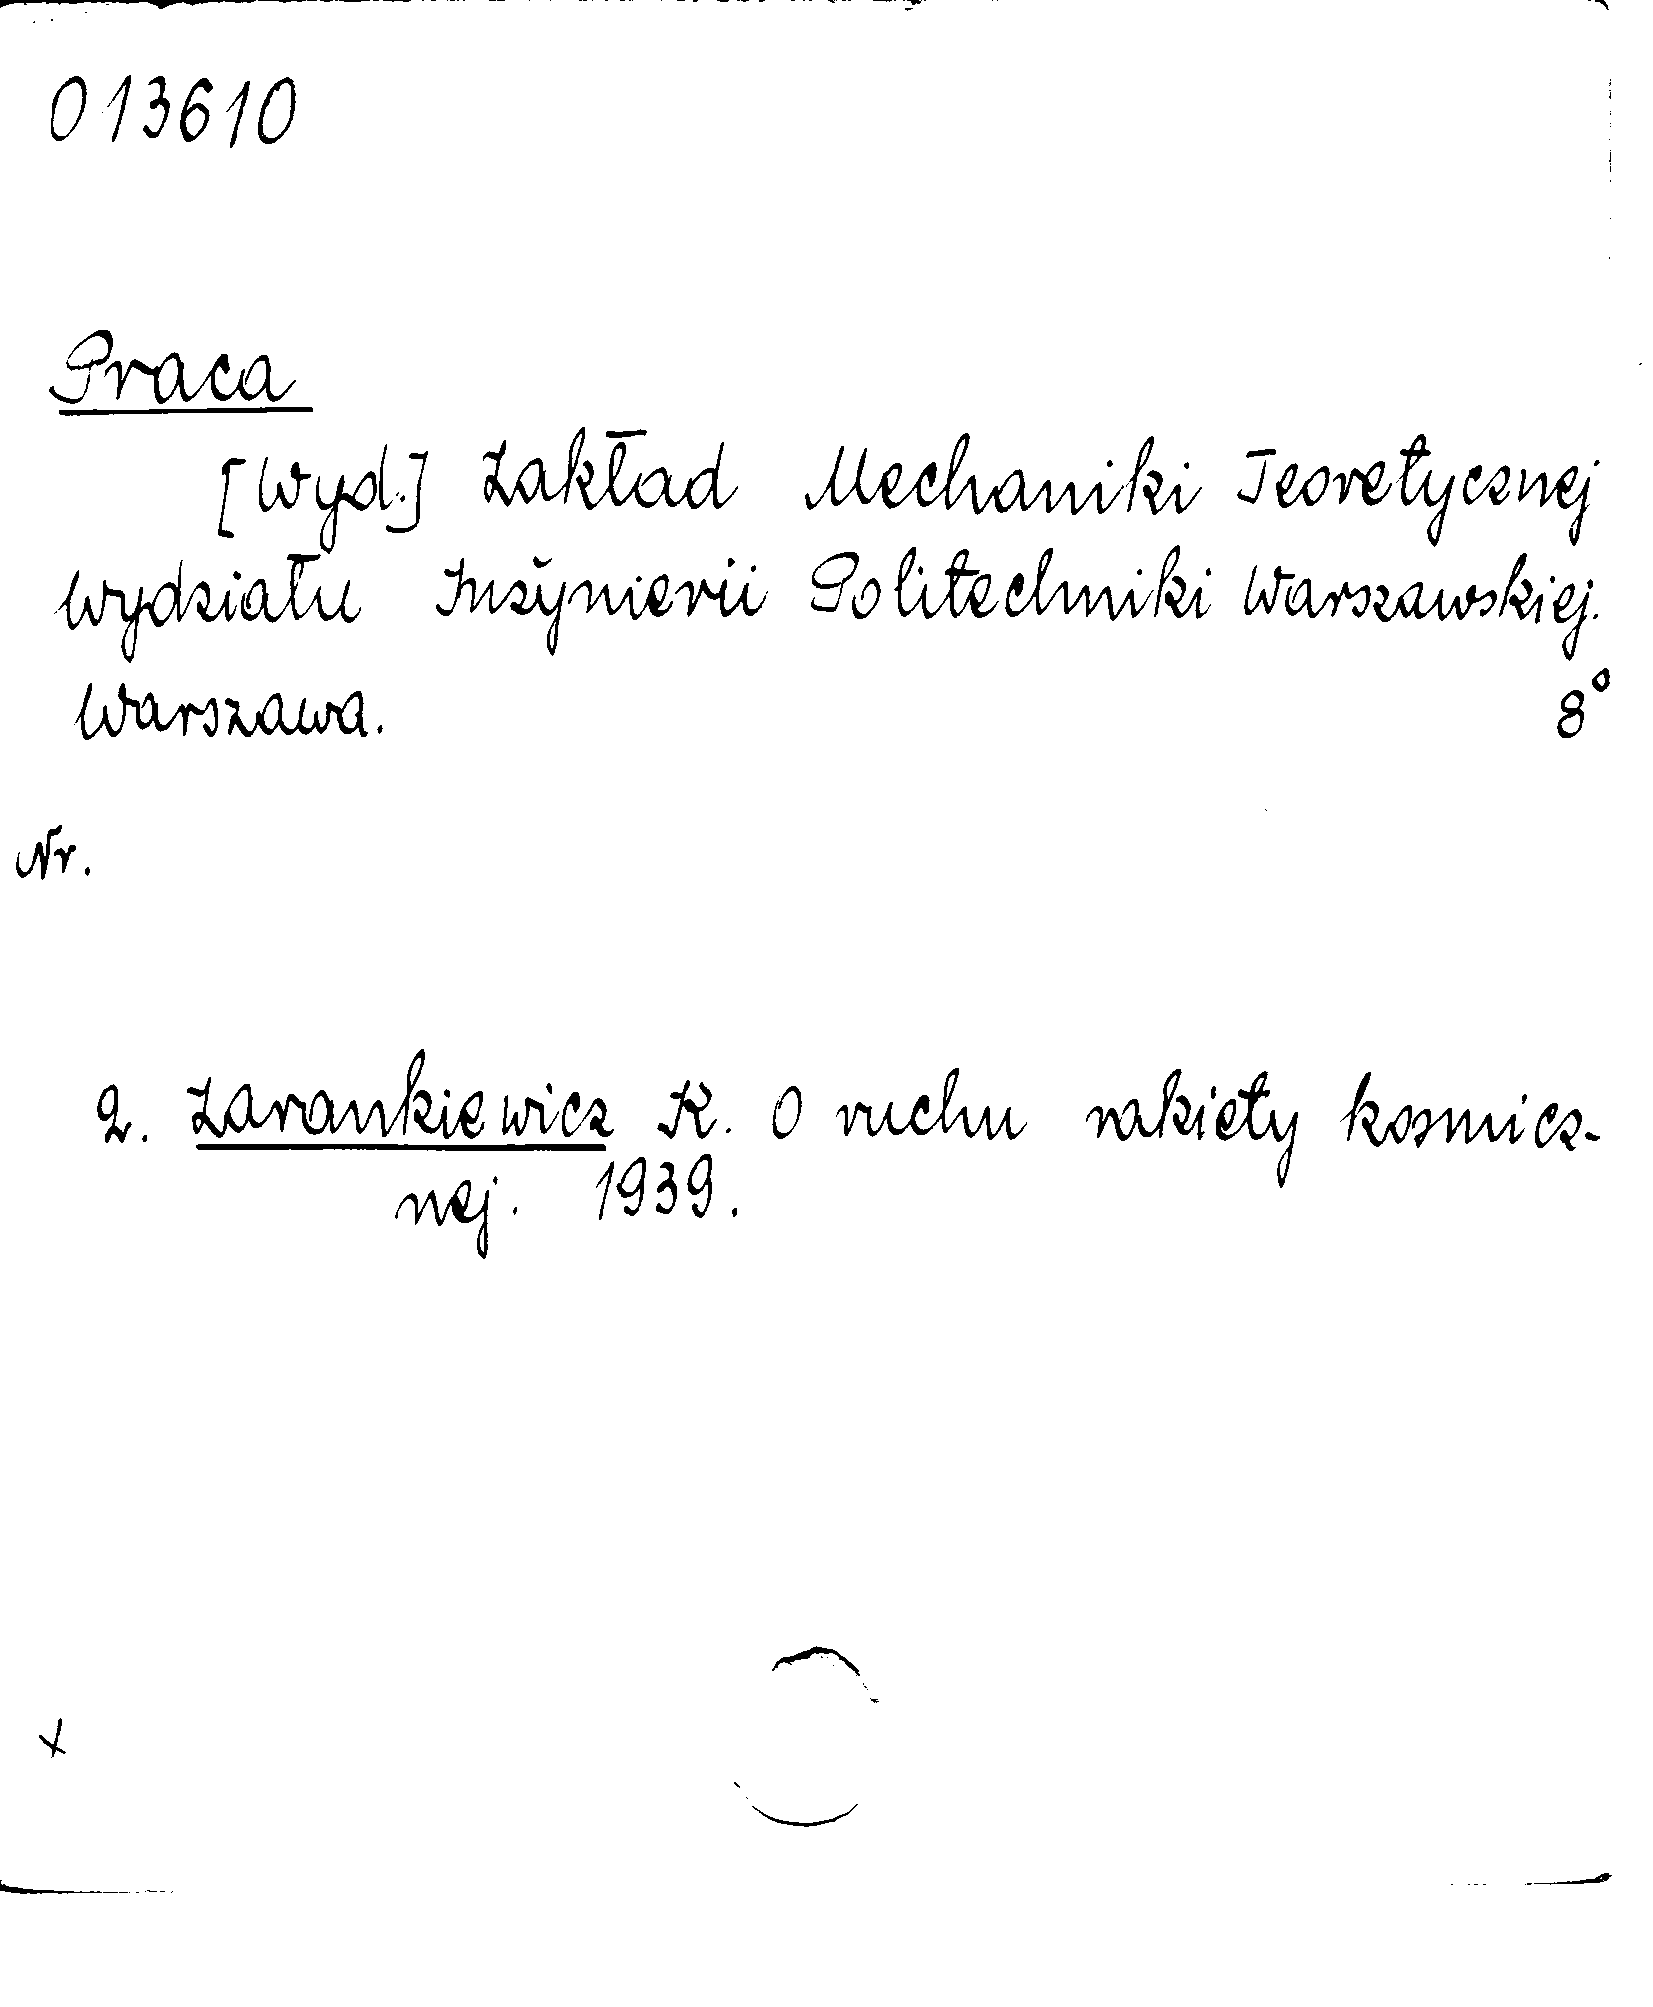 013610
Praca
[Wyd.] Zakład Mechaniki Teoretycznej
Wydziału Inżynierii Politechniki Warszawskiej.
Warszawa. 8°
Nr.
2. Zarankiewicz K. O ruchu rakiety kosmicz-
nej. 1939.
x